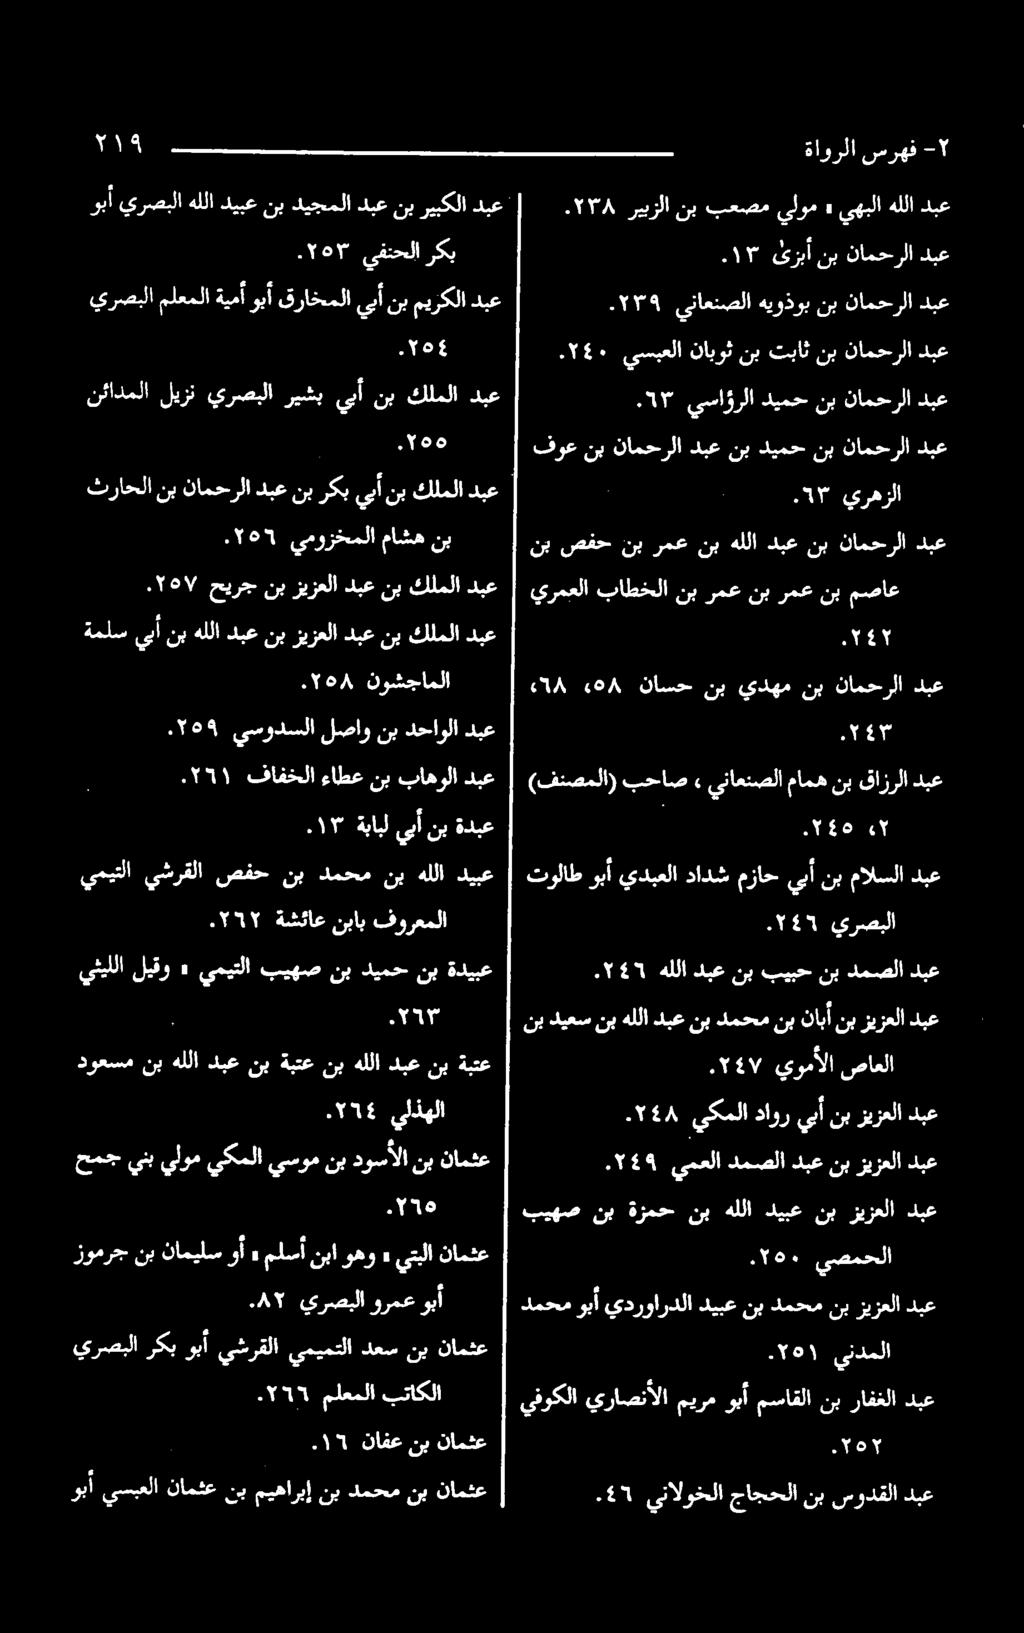 ٢- فهرس الرواة ٢١٩
عبد الله البهي ▪ مولي مصعب بن الزبير ٢٣٨.
عبد الرحمان بن أبزىٰ ١٣.
عبد الرحمان بن بوذويه الصنعاني ٢٣٩.
عبد الرحمان بن ثابت بن ثوبان العبسي ٢٤٠.
عبد الرحمان بن حميد الرؤاسي ٦٣.
عبد الرحمان بن حميد بن عبد الرحمان بن عوف
الزهري ٦٣.
عبد الرحمان بن عبد الله بن عمر بن حفص بن
عاصم بن عمر بن عمر بن الخطاب العمري
٢٤٢.
عبد الرحمان بن مهدي بن حسان ٥٨، ٦٨،
٢٤٣.
عبد الرزاق بن همام الصنعاني ، صاحب (المصنف)
٢، ٢٤٥.
عبد السلام بن أبي حازم شداد العبدي أبو طالوت
البصري ٢٤٦.
عبد الصمد بن حبيب بن عبد الله ٢٤٦.
عبد العزيز بن أبان بن محمد بن عبد الله بن سعيد بن
العاص الأموي ٢٤٧.
عبد العزيز بن أبي رواد المكي ٢٤٨.
عبد العزيز بن عبد الصمد العمي ٢٤٩.
عبد العزيز بن عبيد الله بن حمزة بن صهيب
الحمصي ٢٥٠.
عبد العزيز بن محمد بن عبيد الدراوردي أبو محمد
المدني ٢٥١.
عبد الغفار بن القاسم أبو مريم الأنصاري الكوفي
٢٥٢.
عبد القدوس بن الحجاج الخولاني ٤٦.
عبد الكبير بن عبد المجيد بن عبيد الله البصري أبو
بكر الحنفي ٢٥٣.
عبد الكريم بن أبي المخارق أبو أمية المعلم البصري
٢٥٤.
عبد الملك بن أبي بشير البصري نزيل المدائن
٢٥٥.
عبد الملك بن أبي بكر بن عبد الرحمان بن الحارث
بن هشام المخزومي ٢٥٦.
عبد الملك بن عبد العزيز بن جريح ٢٥٧.
عبد الملك بن عبد العزيز بن عبد الله بن أبي سلمة
الماجشون ٢٥٨.
عبد الواحد بن واصل السدوسي ٢٥٩.
عبد الوهاب بن عطاء الخفاف ٢٦١.
عبدة بن أبي لبابة ١٣.
عبيد الله بن محمد بن حفص القرشي التيمي
المعروف بابن عائشة ٢٦٢.
عبيدة بن حميد بن صهيب التيمي ▪ وقيل الليثي
٢٦٣.
عتبة بن عبد الله بن عتبة بن عبد الله بن مسعود
الهذلي ٢٦٤.
عثمان بن الأسود بن موسي المكي مولي بني جمح
٢٦٥.
عثمان البتي ▪ وهو ابن أسلم ▪ أو سليمان بن جرموز
أبو عمرو البصري ٨٢.
عثمان بن سعد التميمي القرشي أبو بكر البصري
الكاتب المعلم ٢٦٦.
عثمان بن عفان ١٦.
عثمان بن محمد بن إبراهيم بن عثمان العبسي أبو